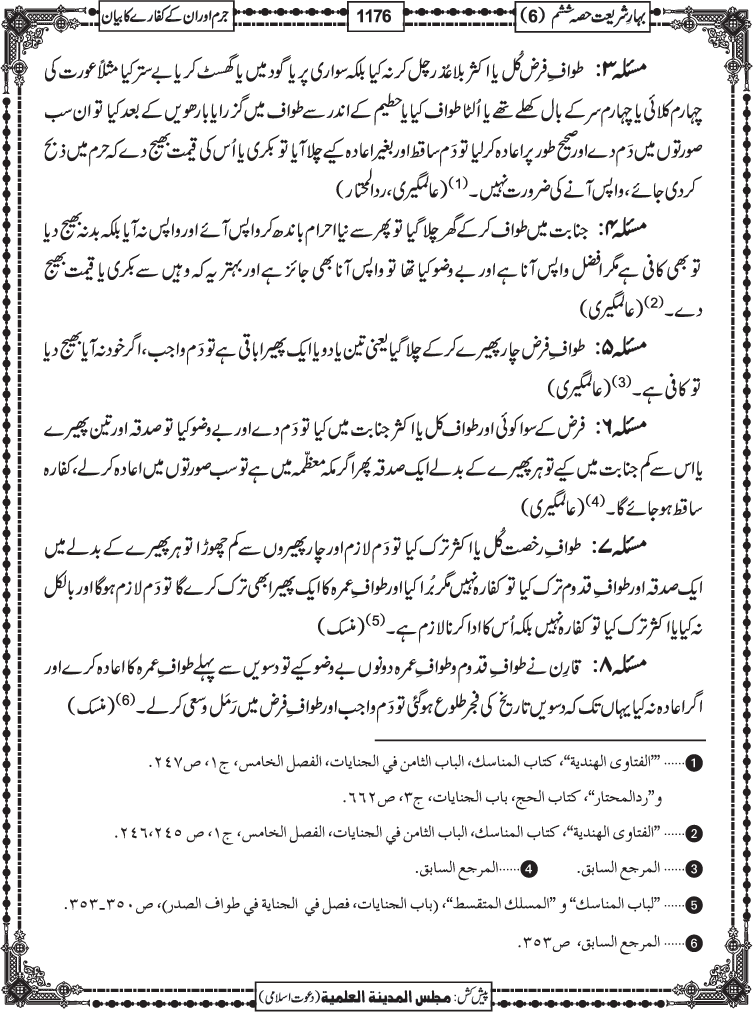 بہارِ شریعت حصہ ششم (6)
1176
جرم اور ان کے کفارے کا بیان
مسئلہ ۳: طوافِ فرض کُل یا اکثر بلا عذر چل کر نہ کیا بلکہ سواری پر یا گود میں یا گھسٹ کر یا بے ستر کیا مثلاً عورت کی
چہارم کلائی یا چہارم سر کے بال کھلے تھے یا اُلٹا طواف کیا یا حطیم کے اندر سے طواف میں گزرا یا بارھویں کے بعد کیا تو ان سب
صورتوں میں دَم دے اور صحیح طور پر اعادہ کرلیا تو دَم ساقط اور بغیر اعادہ کیے چلا آیا تو بکری یا اُس کی قیمت بھیج دے کہ حرم میں ذبح
کردی جائے، واپس آنے کی ضرورت نہیں۔ (1) (عالمگیری، ردالمحتار)
مسئلہ ۴: جنابت میں طواف کرکے گھر چلا گیا تو پھر سے نیا احرام باندھ کر واپس آئے اور واپس نہ آیا بلکہ بدنہ بھیج دیا
تو بھی کافی ہے مگر افضل واپس آنا ہے اور بے وضو کیا تھا تو واپس آنا بھی جائز ہے اور بہتر یہ کہ وہیں سے بکری یا قیمت بھیج
دے۔ (2) (عالمگیری)
مسئلہ ۵: طوافِ فرض چار پھیرے کرکے چلا گیا یعنی تین یا دو یا ایک پھیرا باقی ہے تو دَم واجب، اگر خود نہ آیا بھیج دیا
تو کافی ہے۔ (3) (عالمگیری)
مسئلہ ۶: فرض کے سوا کوئی اور طواف کل یا اکثر جنابت میں کیا تو دَم دے اور بے وضو کیا تو صدقہ اور تین پھیرے
یا اس سے کم جنابت میں کیے تو ہر پھیرے کے بدلے ایک صدقہ پھر اگر مکہ معظّمہ میں ہے تو سب صورتوں میں اعادہ کرلے، کفارہ
ساقط ہو جائے گا۔ (4) (عالمگیری)
مسئلہ ۷: طوافِ رخصت کُل یا اکثر ترک کیا تو دَم لازم اور چار پھیروں سے کم چھوڑا تو ہر پھیرے کے بدلے میں
ایک صدقہ اور طوافِ قدوم ترک کیا تو کفارہ نہیں مگر بُرا کیا اور طوافِ عمرہ کا ایک پھیرا بھی ترک کرے گا تو دَم لازم ہوگا اور بالکل
نہ کیا یا اکثر ترک کیا تو کفارہ نہیں بلکہ اُس کا ادا کرنا لازم ہے۔ (5) (منسک)
مسئلہ ۸: قارِن نے طوافِ قدوم و طوافِ عمرہ دونوں بے وضو کیے تو دسویں سے پہلے طوافِ عمرہ کا اعادہ کرے اور
اگر اعادہ نہ کیا یہاں تک کہ دسویں تاریخ کی فجر طلوع ہوگئی تو دَم واجب اور طوافِ فرض میں رَمَل و سعی کرلے۔ (6) (منسک)
1 ...... ”’الفتاوی الهندیة‘‘، کتاب المناسك، الباب الثامن في الجنايات، الفصل الخامس، ج۱، ص۲٤۷.
و”ردالمحتار“، كتاب الحج، باب الجنايات، ج۳، ص٦٦۲.
2 ...... ”الفتاوی الهندیة“، كتاب المناسك، الباب الثامن في الجنايات، الفصل الخامس، ج۱، ص ۲٤٥،۲٤٦.
3 ...... المرجع السابق. 4 ......المرجع السابق.
5 ...... ”لباب المناسك“ و ”المسلك المتقسط“، (باب الجنايات، فصل في الجناية في طواف الصدر)، ص۳٥۰ـ۳٥۳.
6 ...... المرجع السابق، ص۳٥۳.
پیش کش: مجلس المدینة العلمیة (دعوت اسلامی)